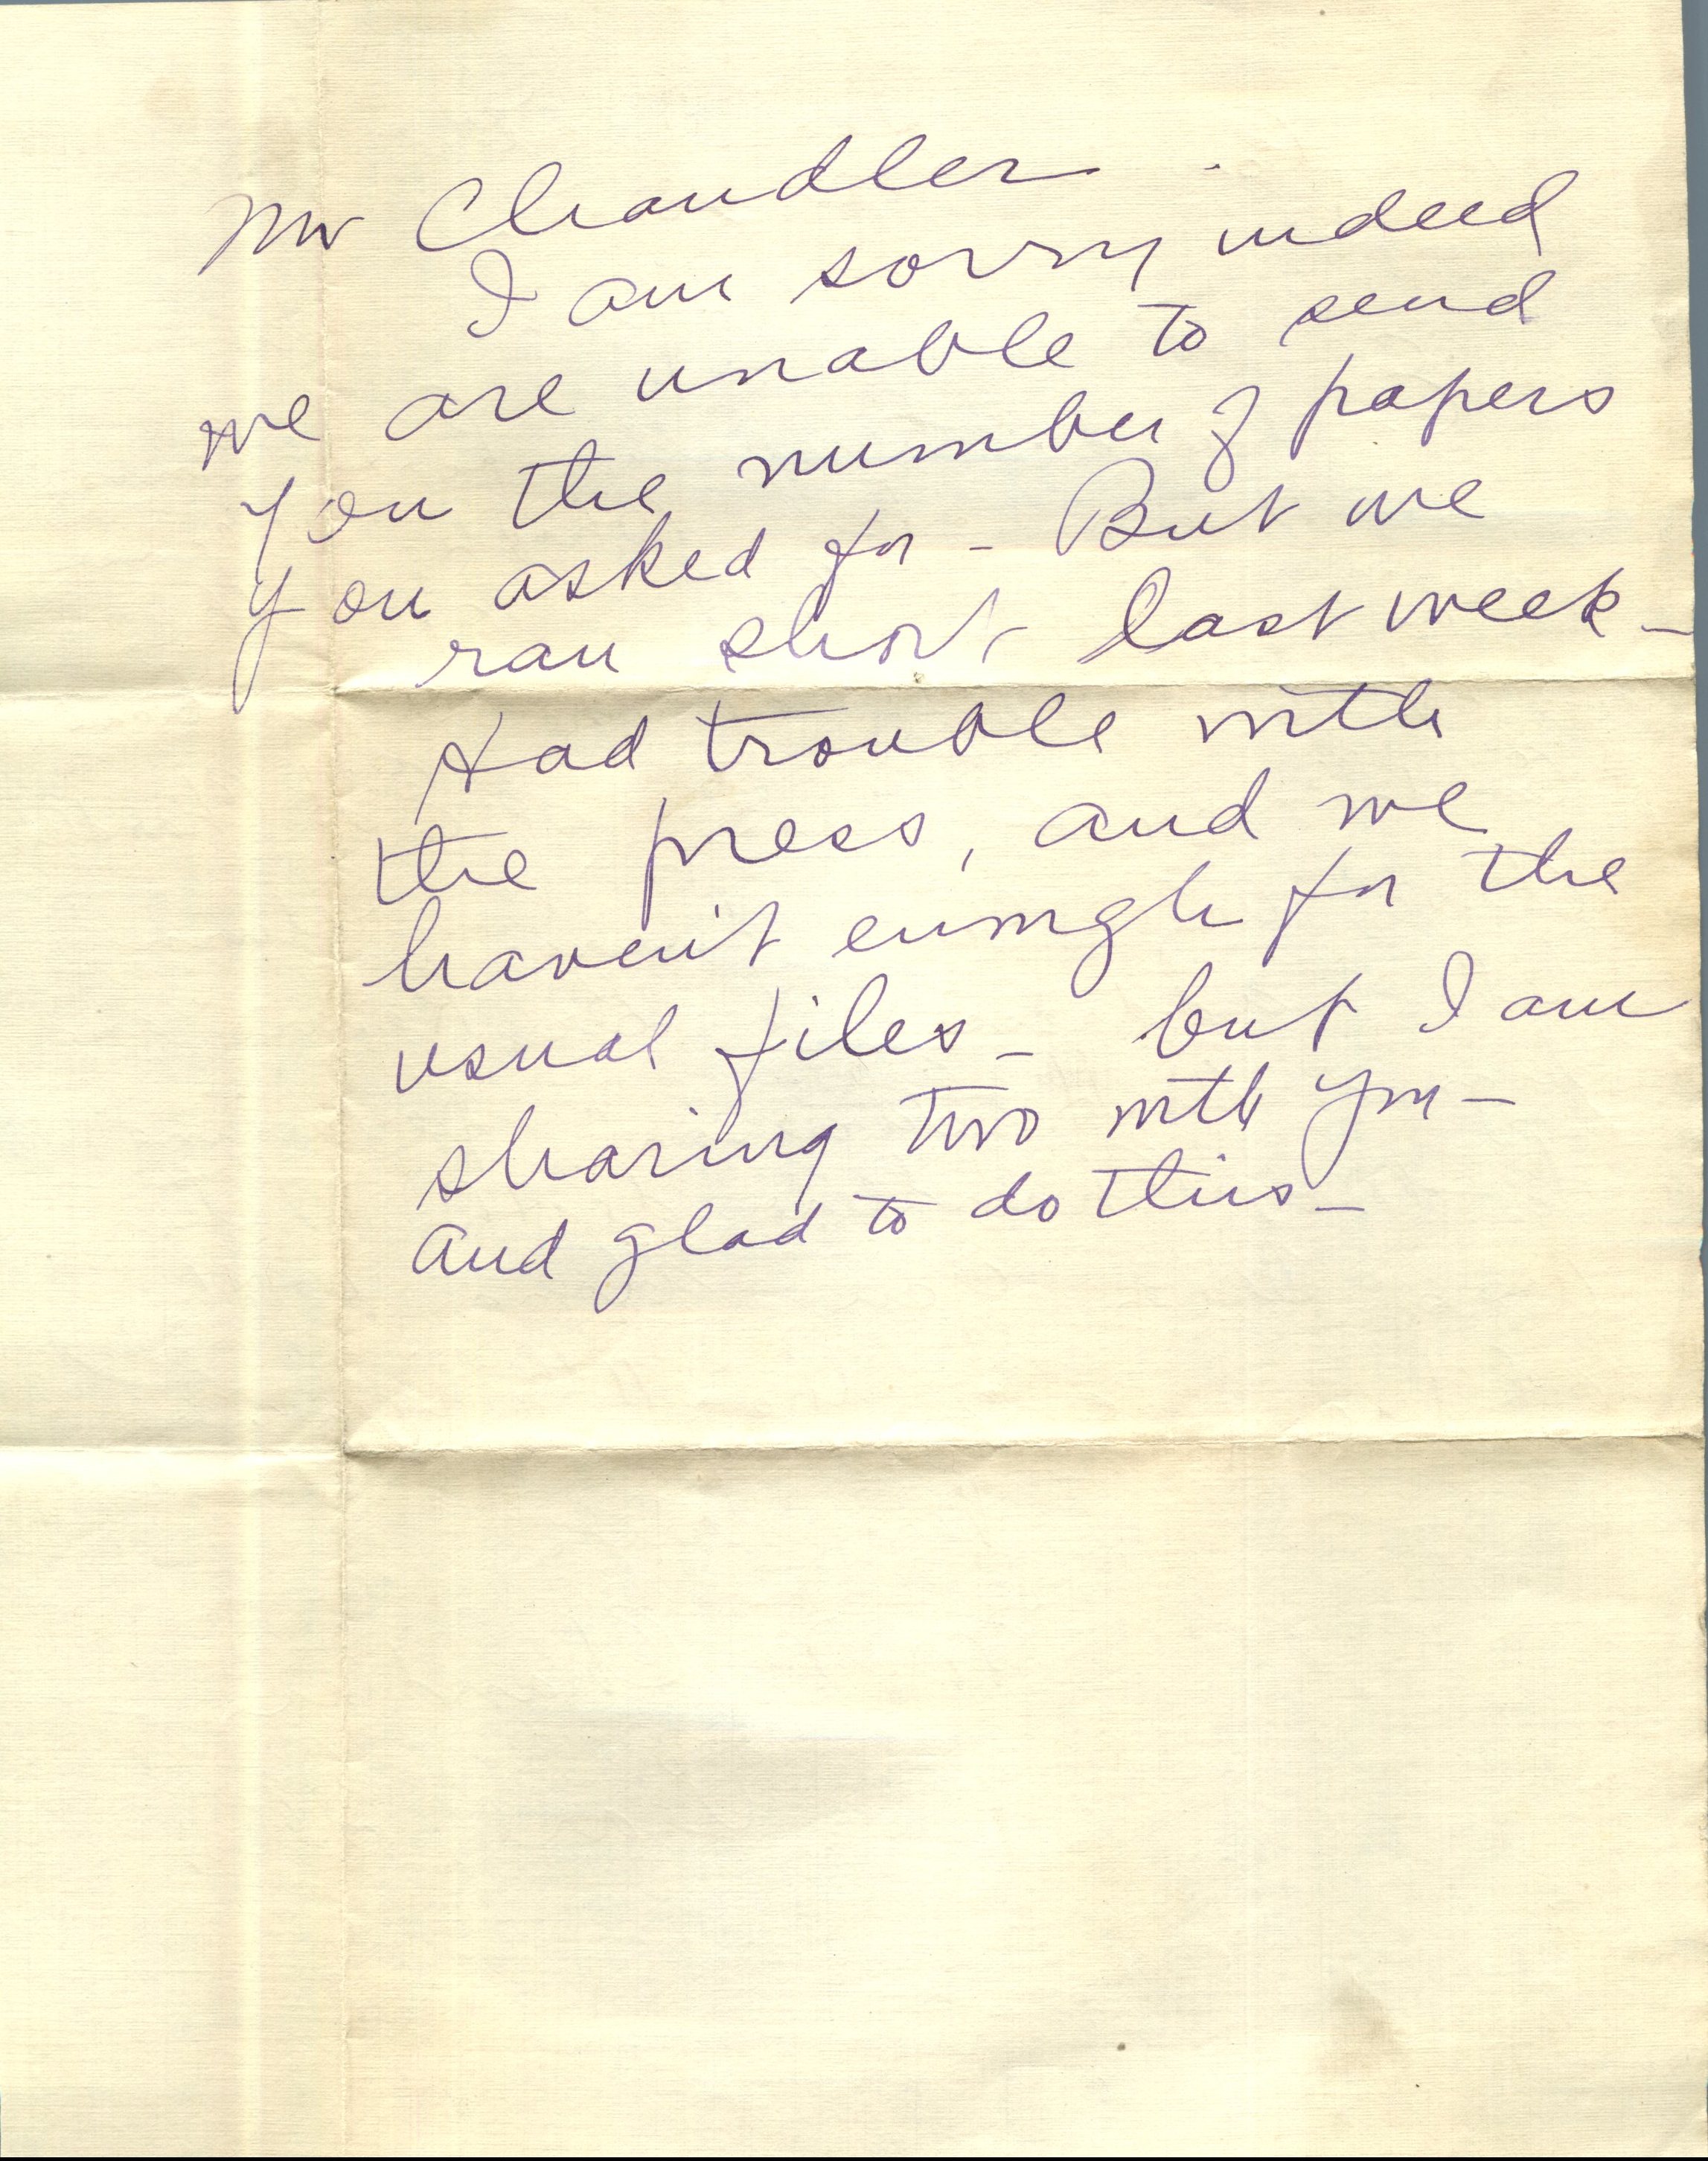 Mr Chandler
I am sorry indeed
we are unable to send
you the number of papers
you asked for - But we
ran short last week -
Had trouble with
the press, and we
haven't enough for the
usual files - but I am
sharing two with you -
and glad to do this -